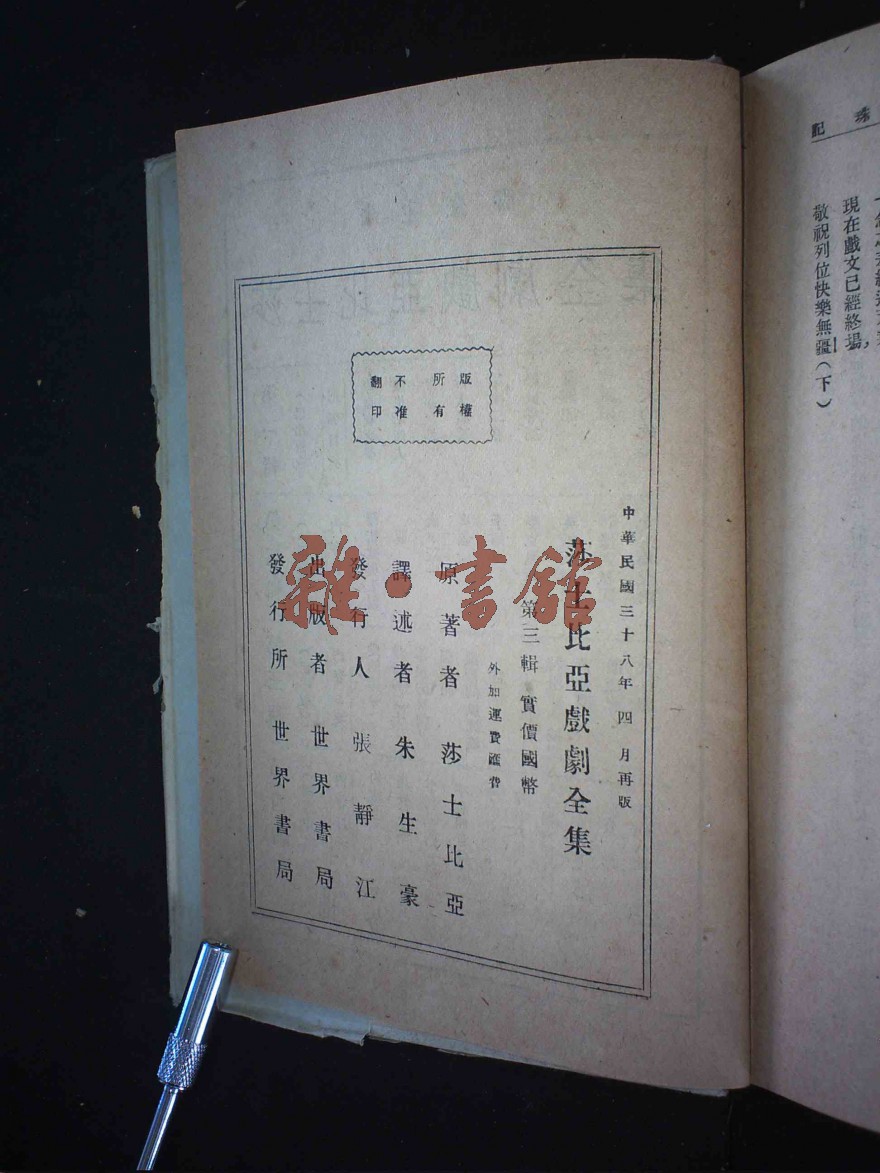 記 珠
現在戲文已經終場，
敬祝列位快樂無疆（下）
版權
所有
不准
翻印
中華民國三十八年四月再版
莎士比亞戲劇全集
第三輯 實價國幣
外加運費匯費
原著者 莎士比亞
譯述者 朱生豪
發行人 張靜江
出版者 世界書局
發行所 世界書局
雜·書館